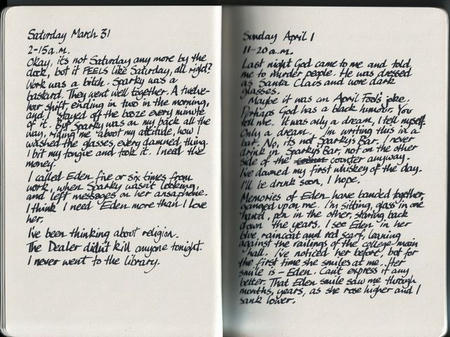 Saturday March 31
2-15 a.m.
Okay, it's not Saturday any more by the
clock, but it FEELS like Saturday, all right?
Work was a bitch. Sparky was a
bastard. They went well together. A twelve-
hour shift, ending in two in the morning,
and I stayed off the booze every minute
of it. But Sparky was on my back all the
way, riding me about my attitude, how I
washed the glasses, every damned thing.
I bit my tongue and took it. I need the
money.
I called Eden five or six times from
work, when Sparky wasn't looking,
and left messages on her ansaphone.
I think I need Eden more than I love
her.
I've been thinking about religion.
The Dealer didn't kill anyone tonight.
I never went to the library.
Sunday April 1
11-20 a.m.
Last night God came to me and told
me to murder people. He was dressed
as Santa Claus and wore dark
glasses.
Maybe it was an April Fool's joke.
Perhaps God has a black humour. You
bet. It was only a dream, I tell myself.
Only a dream. I'm writing this in a
bar. No, it's not Sparky's Bar. I never
drink in Sparky's Bar, not on the other
side of the counter anyway.
I've downed my first whiskey of the day.
I'll be drunk soon, I hope.
Memories of Eden have banded together,
ganged up on me. I'm sitting, glass in one
hand, pen in the other, staring back
down the years. I see Eden in her
blue raincoat and red scarf, leaning
against the railings of the college main
hall. I've noticed her before, but for
the first time she smiles at me. Her
smile is – Eden. Can't express it any
better. That Eden smile saw me through
months, years, as she rose higher and I
sank lower.